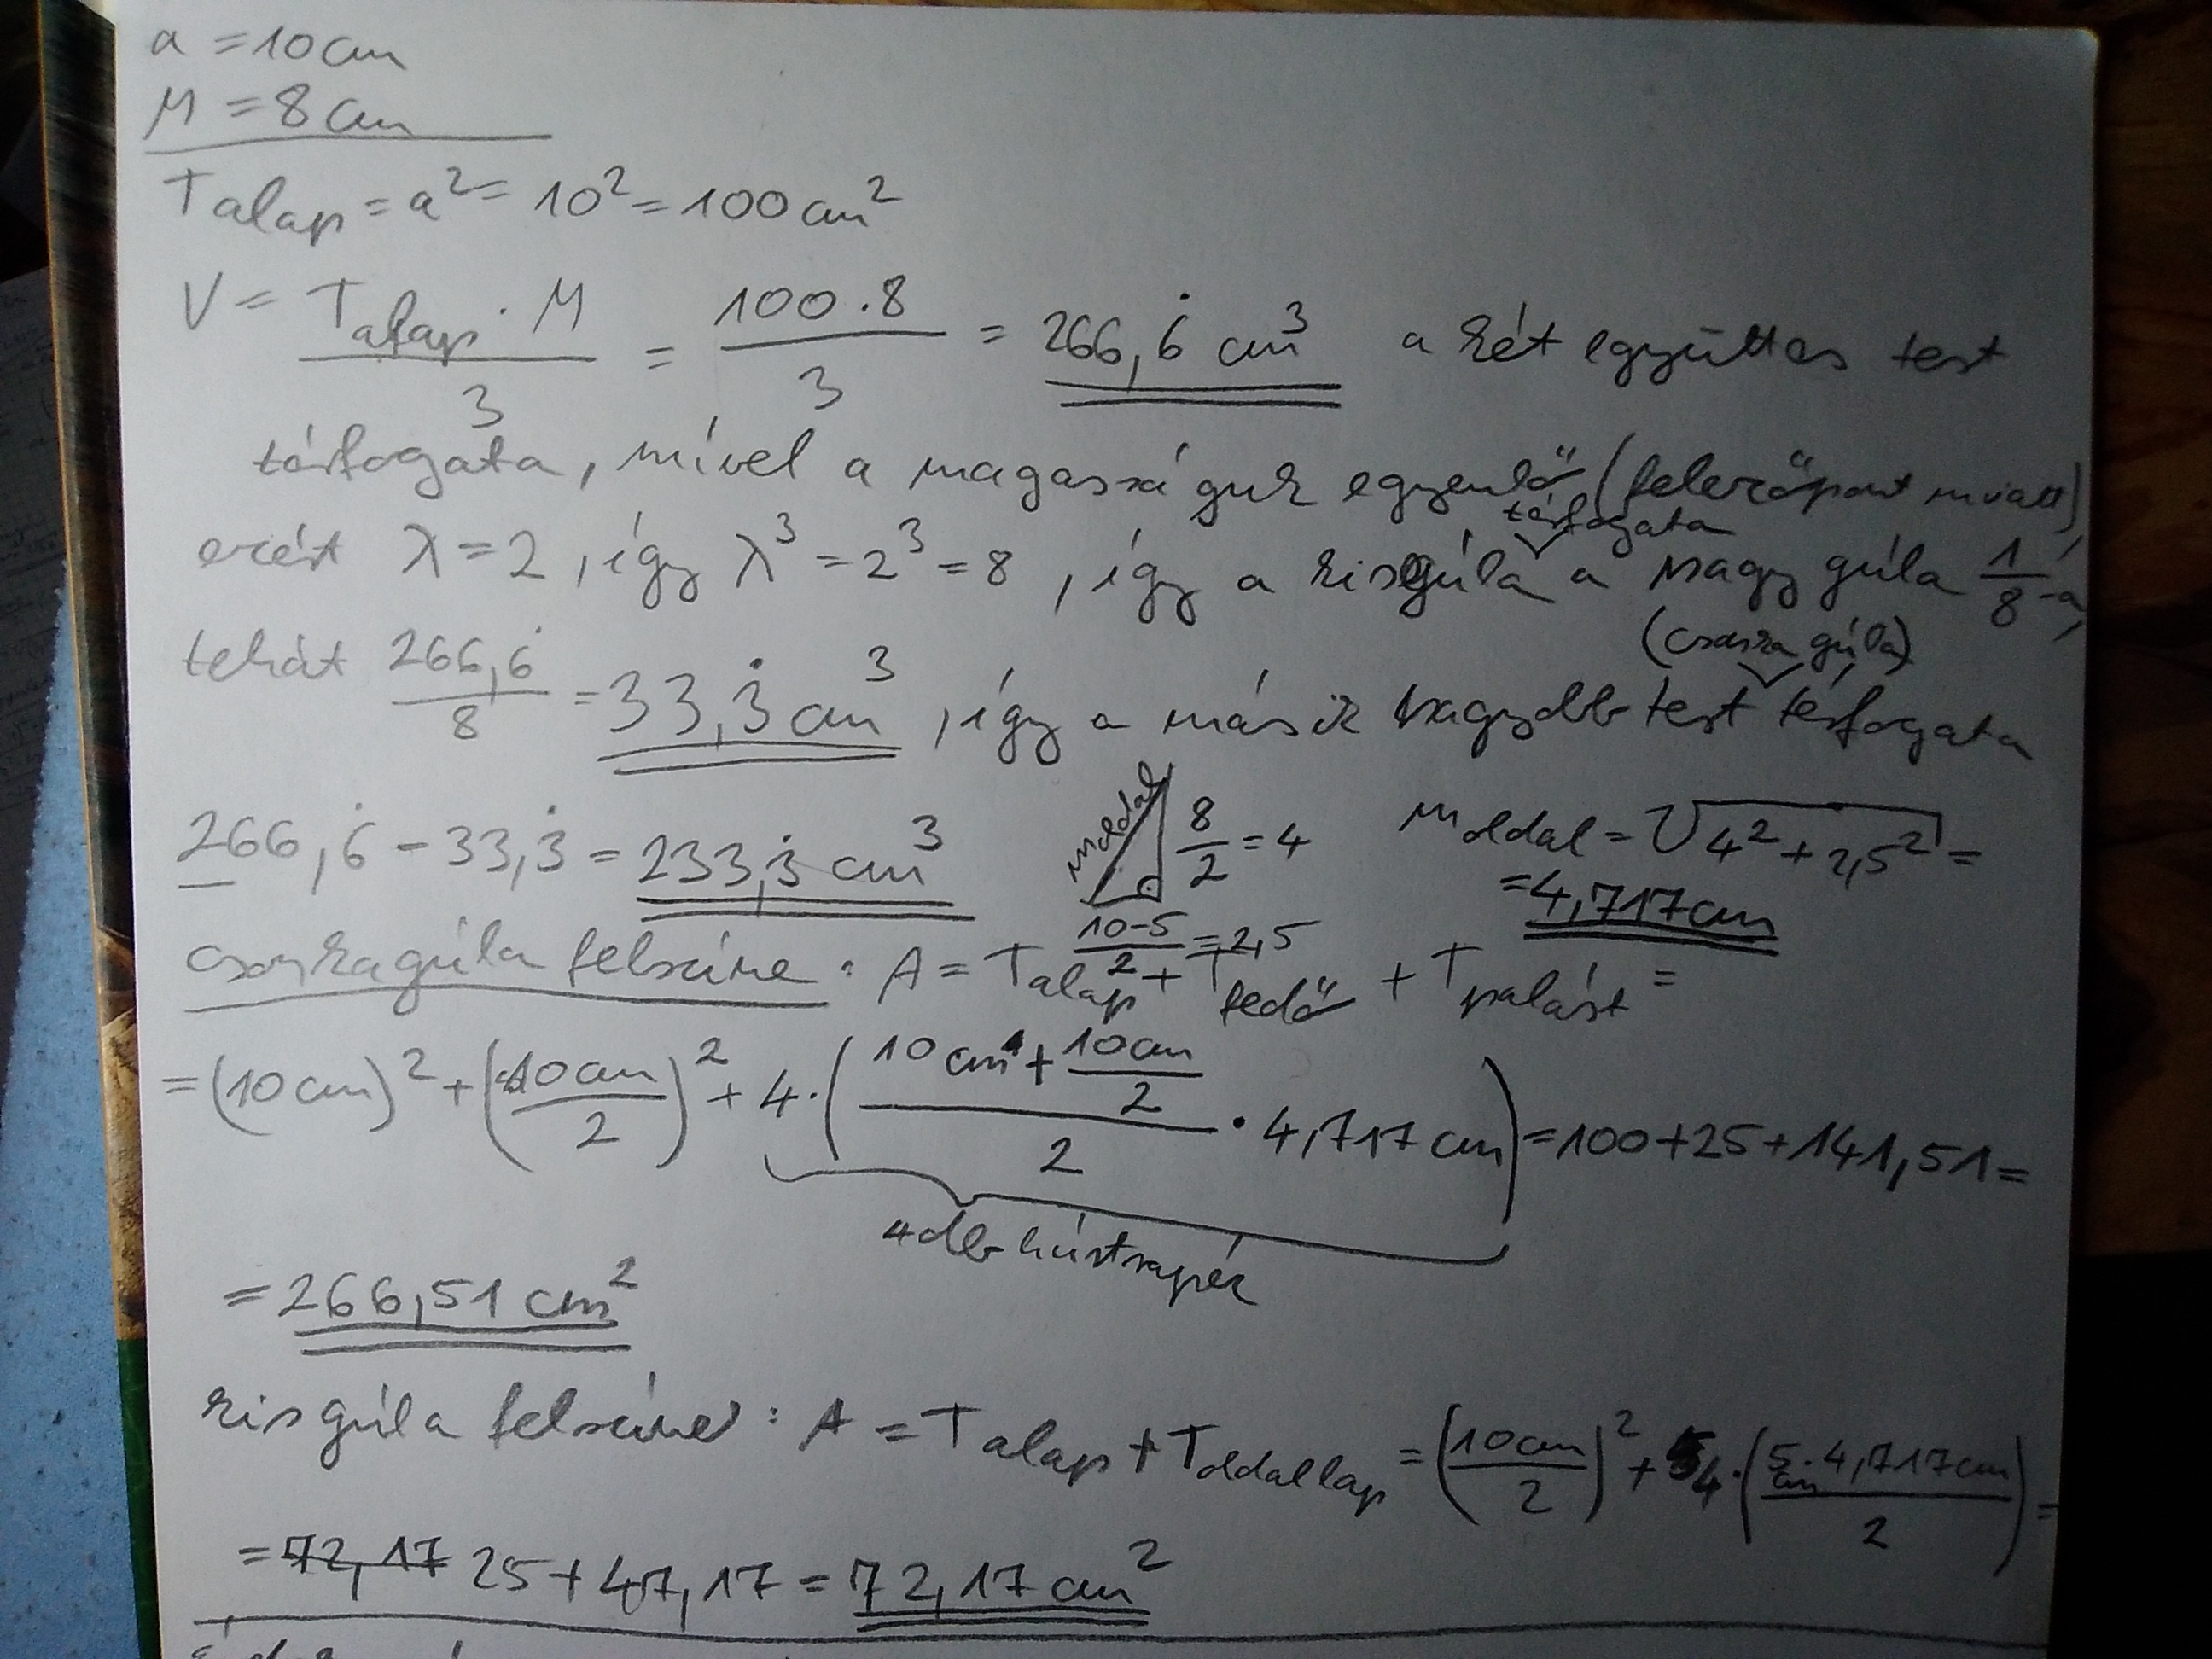 a = 10 cm
M = 8 cm
T alap = a² = 10² = 100 cm²
V = T alap · M / 3 = 100 · 8 / 3 = 266,6̇ cm³ a két együttes test
térfogata, mivel a magasságuk egyenlő (felezőpont miatt),
térfogata
ezért λ = 2, így λ³ = 2³ = 8, így a kisgúla a nagy gúla 1/8-a,
(csonka gúla)
tehát 266,6̇ / 8 = 33,3̇ cm³, így a másik nagyobb test térfogata
266,6̇ - 33,3̇ = 233,3̇ cm³
m oldal
8/2 = 4
10-5 / 2 = 2,5
m oldal = √4² + 2,5² =
= 4,717 cm
csonkagúla felszíne: A = T alap + T fedő + T palást =
= (10 cm)² + (10 cm / 2)² + 4 · (10 cm + 10 cm / 2 / 2 · 4,717 cm) = 100 + 25 + 141,51 =
4 db húrtrapéz
= 266,51 cm²
kisgúla felszíne: A = T alap + T oldallap = (10 cm / 2)² + 4 · (5 cm · 4,717 cm / 2) =
= 72,17 25 + 47,17 = 72,17 cm²